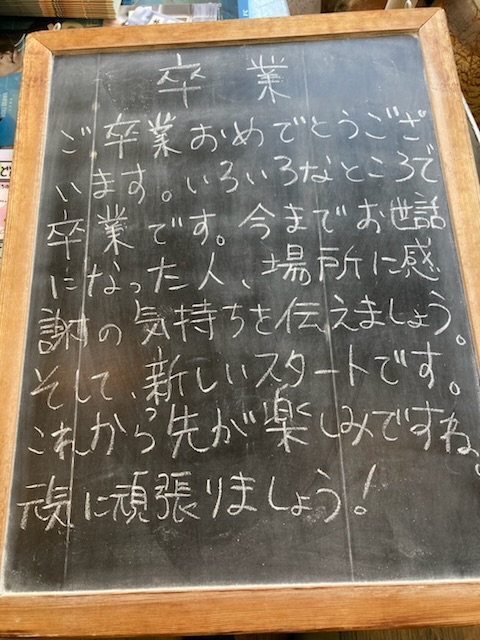 卒業
ご卒業おめでとうござ
います。いろいろなところで
卒業です。今までお世話
になった人、場所に感
謝の気持ちを伝えましょう。
そして、新しいスタートです。
これから先が楽しみですね。
元気に頑張りましょう!